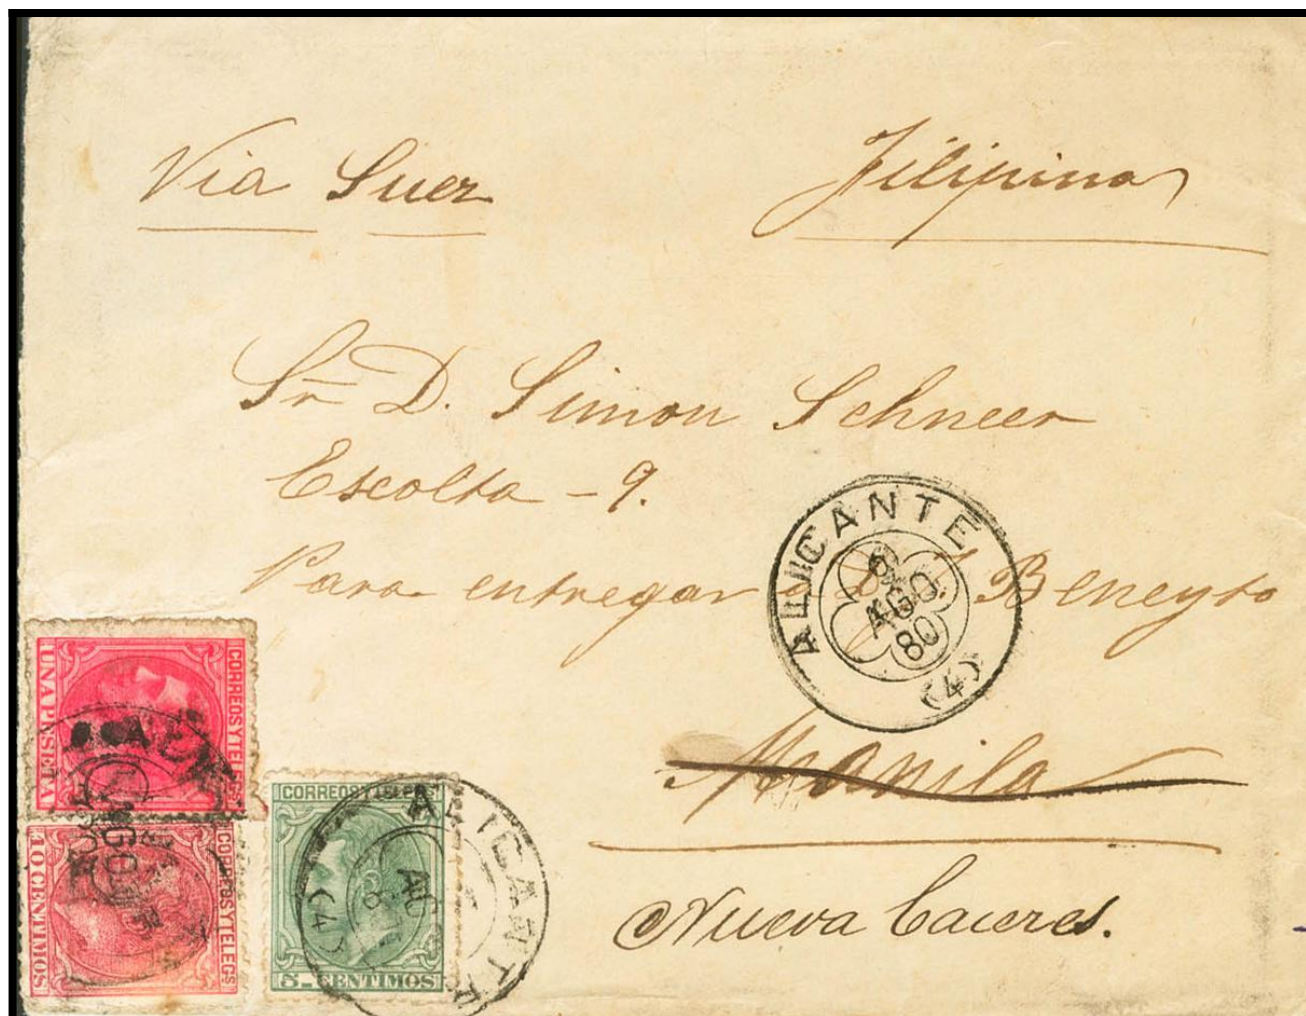 Via Suez
Filipinas
Sr D. Simon Schneer
Escolta - 9.
Para entregar a D. J. Beneyto
ALICANTE
6
AGO.
80
(4)
Manila
Nueva Caceres.
CORREOS Y TELEGS
UNA PESETA
CORREOS Y TELEGS
10 CENTIMOS
CORREOS Y TELEGS
5 CENTIMOS
ALICANTE
(4)